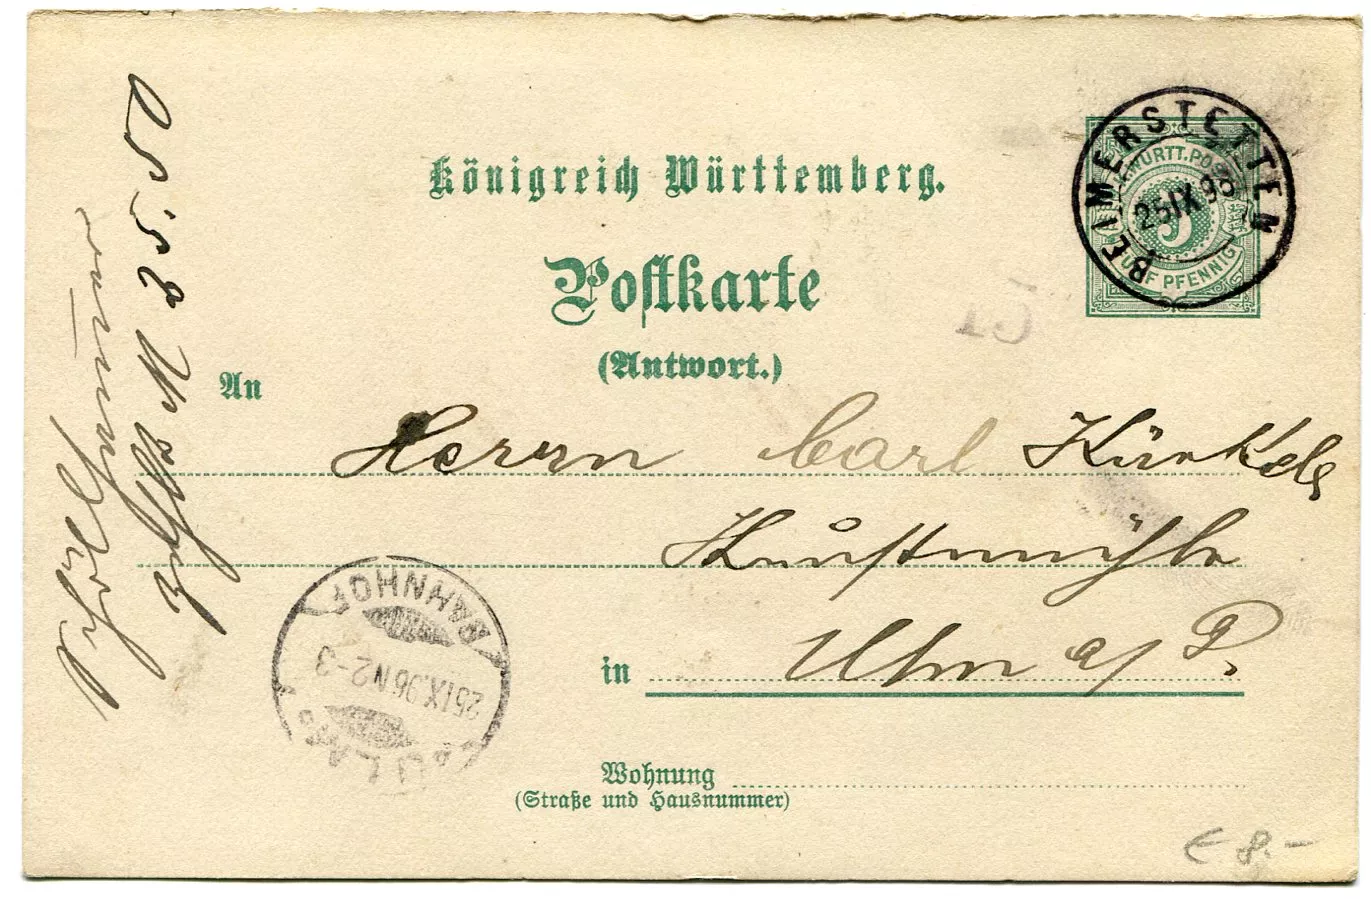 Königreich Württemberg.
Postkarte
(Antwort.)
An
Herrn Carl Künkele
Kunstmühle
in Ulm a/D.
Wohnung
(Straße und Hausnummer)
BEIMERSTETTEN
25/IX 96
WÜRTT. POST
5
FÜNF PFENNIG
BAHNHOF
25 IX. 96 N 2-3
€ 8.-